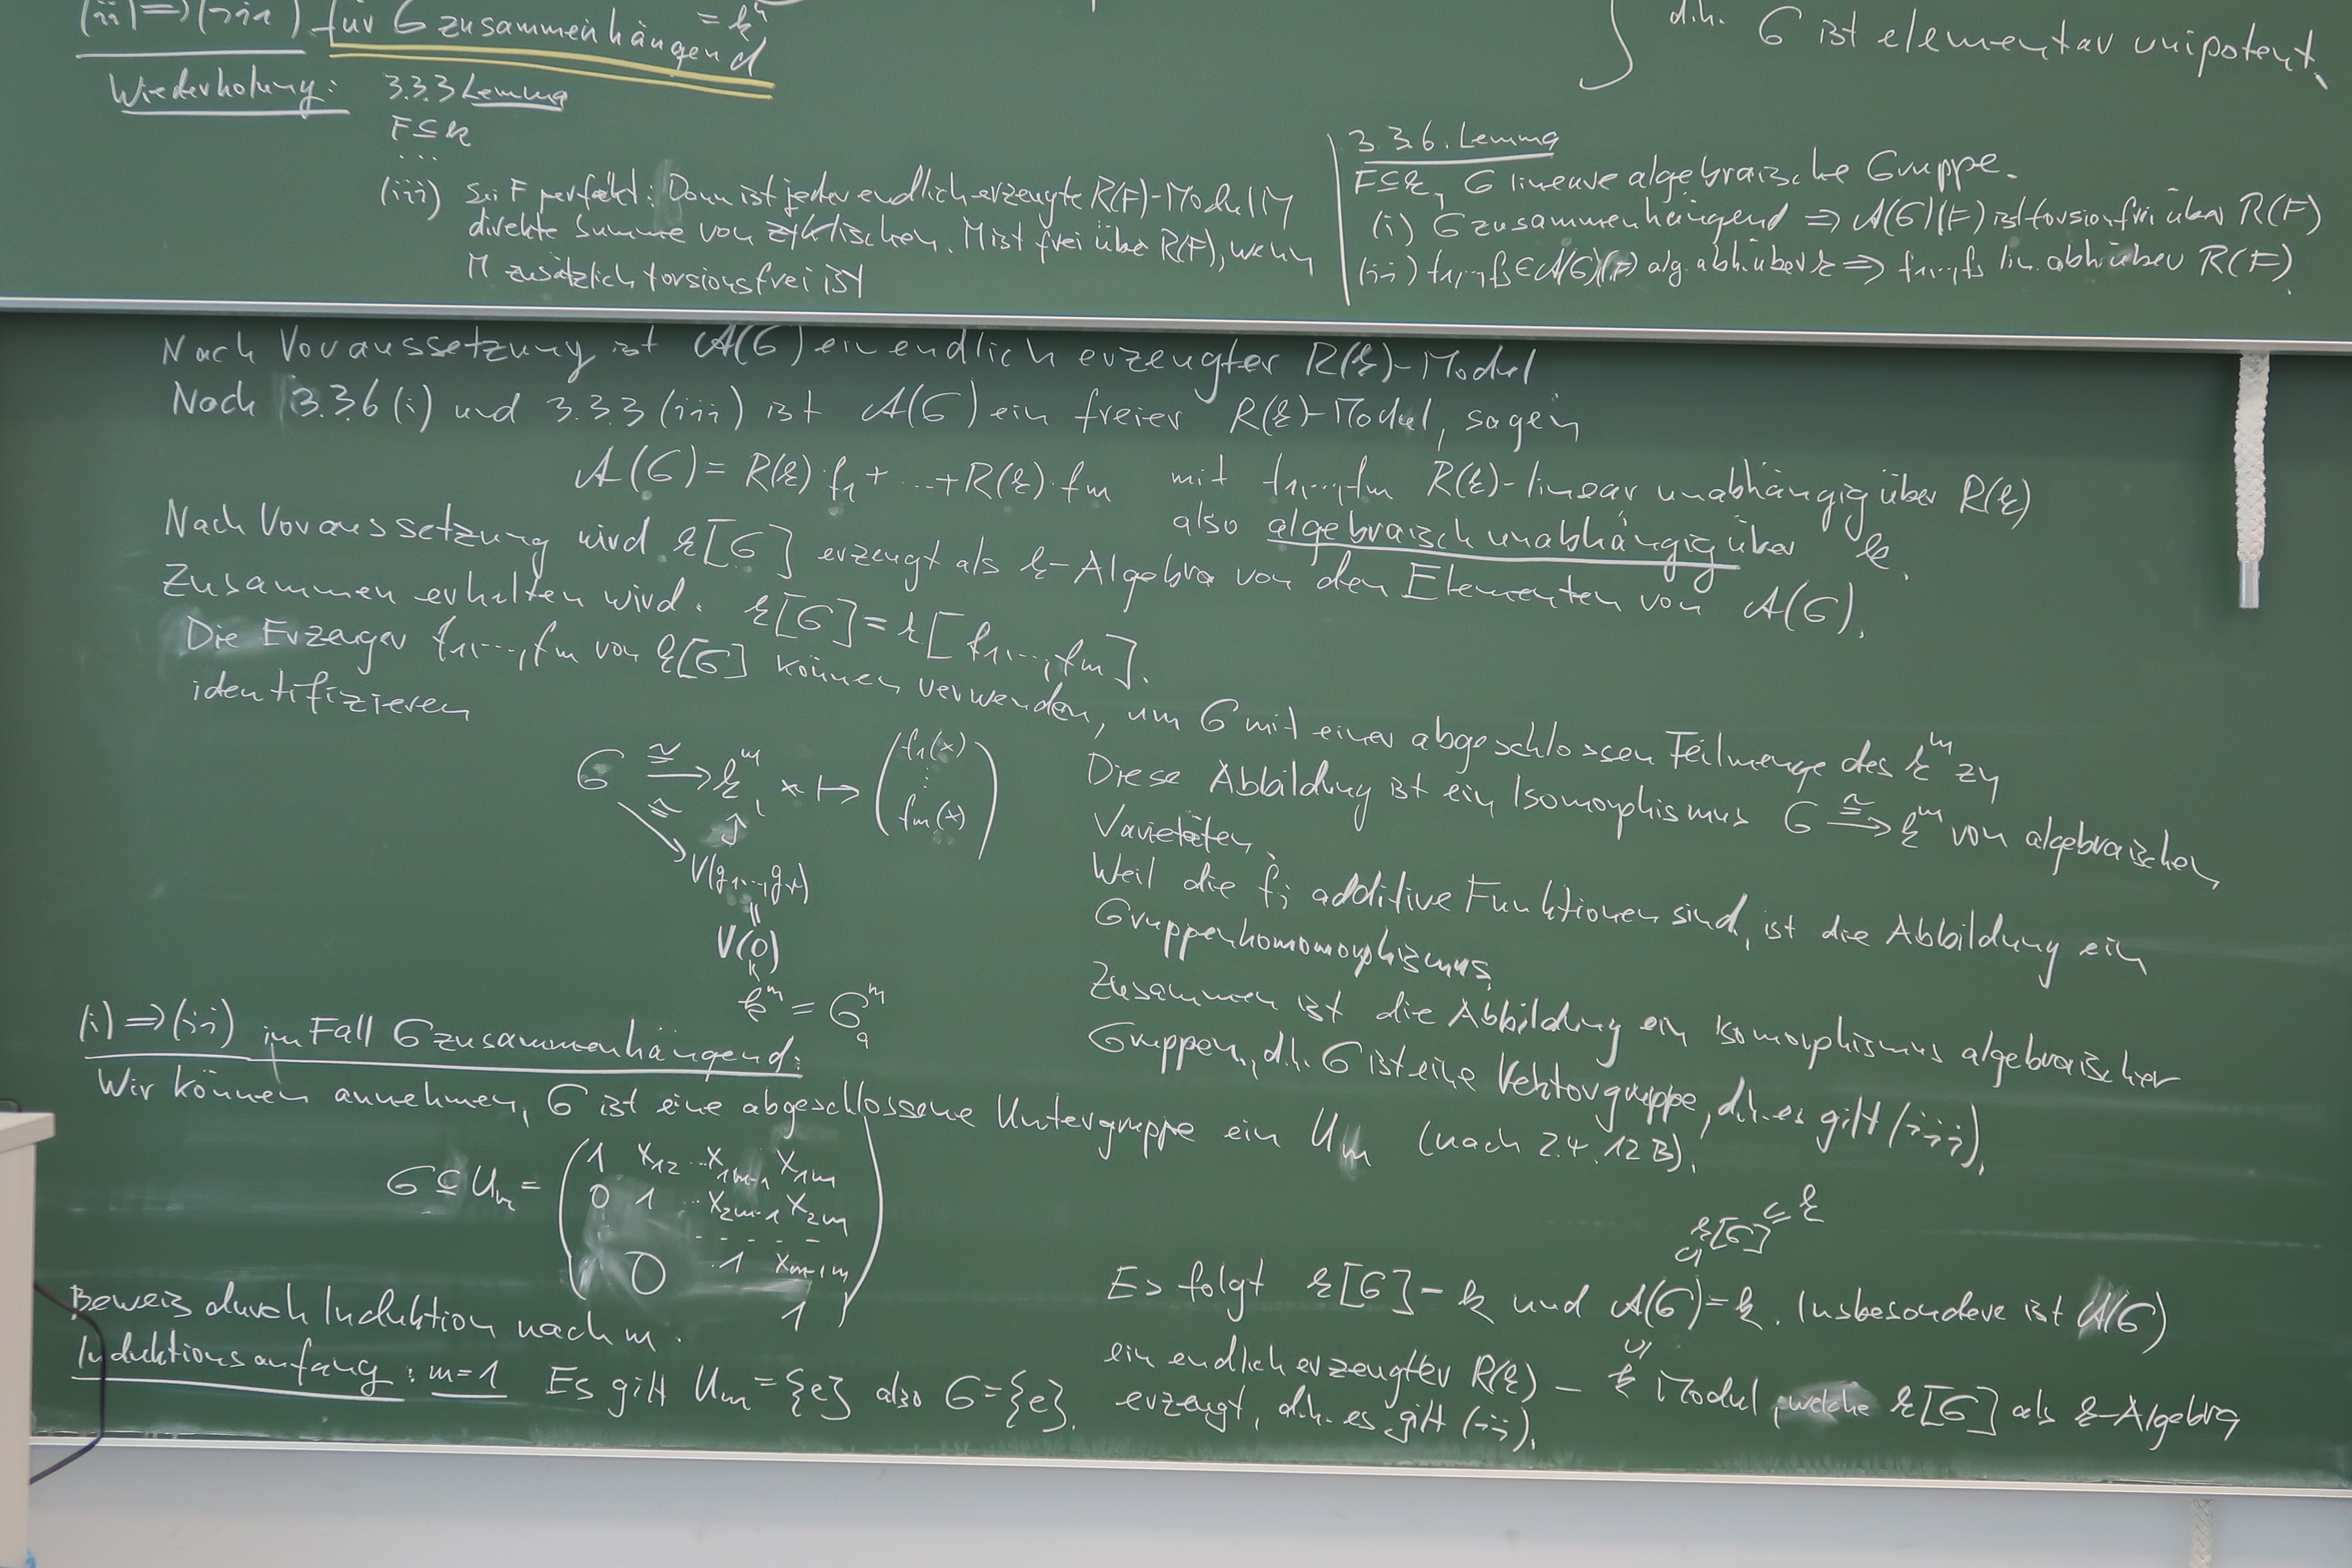 (ii) ⇒ (iii) für G zusammenhängend
= k^n
d.h. G ist elementar unipotent.
Wiederholung: 3.3.3 Lemma
F ⊆ k
...
(iii) Sei F perfekt: Dann ist jeder endlich erzeugte R(F)-Modul M
direkte Summe von zyklischen. M ist frei über R(F), wenn
M zusätzlich torsionsfrei ist
3.3.6. Lemma
F ⊆ k, G lineare algebraische Gruppe.
(i) G zusammenhängend ⇒ A(G)(F) ist torsionsfrei über R(F)
(ii) f1,...,fs ∈ A(G)(F) alg. abh. über k ⇒ f1,...,fs lin. abh. über R(F).
Nach Voraussetzung ist A(G) ein endlich erzeugter R(k)-Modul
Nach 3.3.6 (i) und 3.3.3 (iii) ist A(G) ein freier R(k)-Modul, sagen
A(G) = R(k)·f1 + ... + R(k)·fm mit f1,...,fm R(k)-linear unabhängig über R(k)
also algebraisch unabhängig über k.
Nach Voraussetzung wird k[G] erzeugt als k-Algebra von den Elementen von A(G).
Zusammen erhalten wird. k[G] = k[f1,...,fm].
Die Erzeuger f1,...,fm von k[G] können verwenden, um G mit einer abgeschlossen Teilmenge des k^m zu
identifizieren
G ≅→ k^m, x ↦ (f1(x) ⋮ fm(x))
≅
V(g1,...,gr)
=
V(0)
k^m = G_a^m
Diese Abbildung ist ein Isomorphismus G ≅→ k^m von algebraischen
Varietäten.
Weil die fi additive Funktionen sind, ist die Abbildung ein
Gruppenhomomorphismus,
Zusammen ist die Abbildung ein Isomorphismus algebraischer
Gruppen, d.h. G ist eine Vektorgruppe, d.h. es gilt (iii).
(i) ⇒ (ii) im Fall G zusammenhängend:
Wir können annehmen, G ist eine abgeschlossene Untergruppe ein Um (nach 2.4.12 B).
G ⊆ Um = ( 1 x12 ... x1m-1 x1m
0 1 ... x2m-1 x2m
- - - - - -
0 1 xm-1m
1 )
Beweis durch Induktion nach m.
Induktionsanfang: m=1 Es gilt Um = {e} also G = {e}.
k[G] ⊆ k
⊆
Es folgt k[G] = k und A(G) = k. Insbesondere ist A(G)
⊆
ein endlich erzeugter R(k) - k Modul, welche k[G] als k-Algebra
erzeugt, d.h. es gilt (ii).